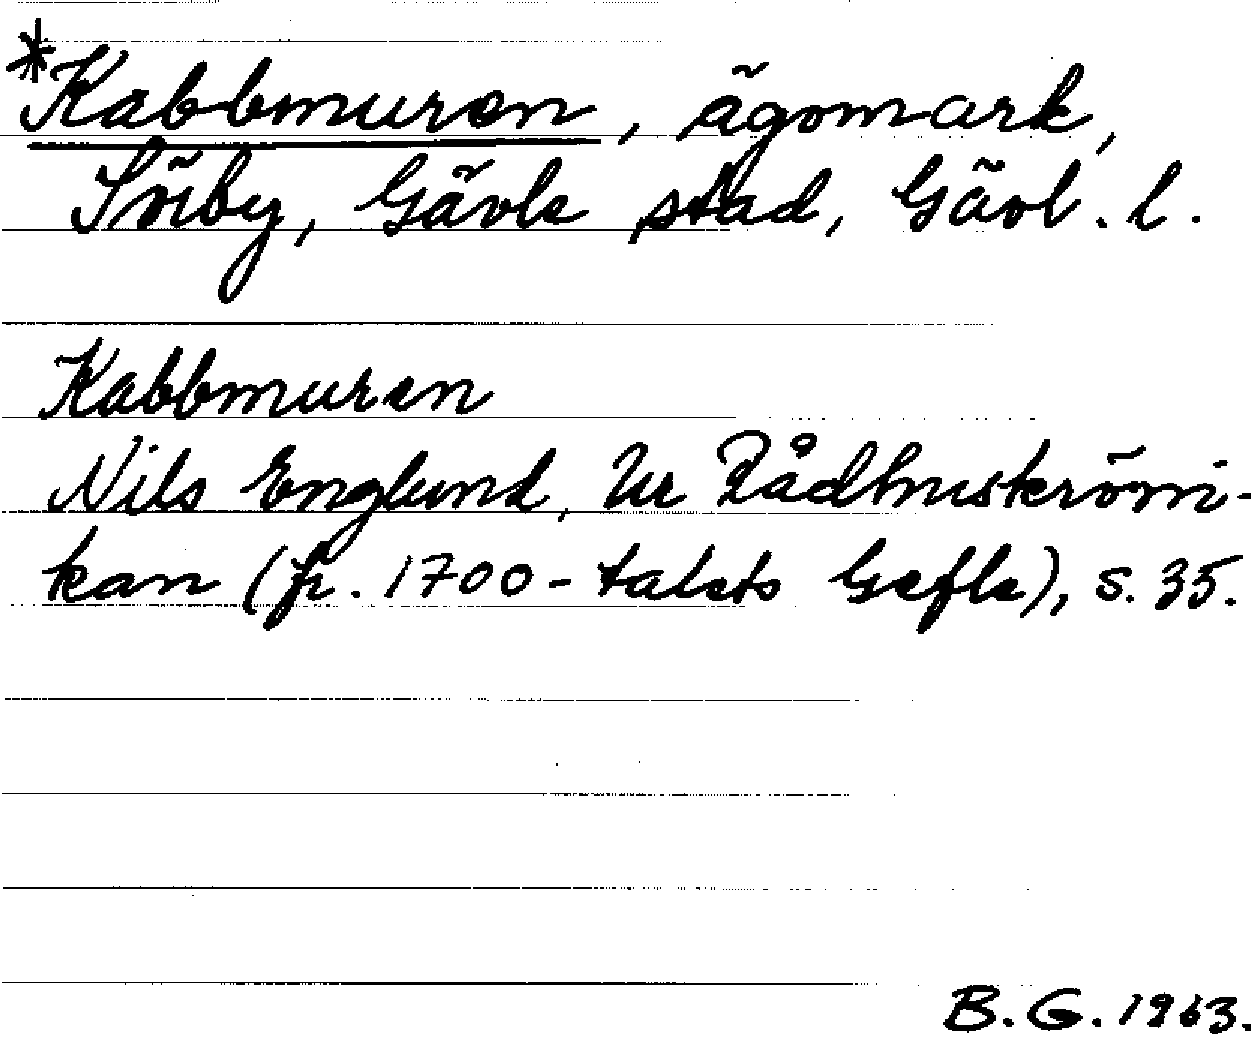 *Kabbmuren, ägomark,
Sörby, Gävle stad, Gävl. l.
Kabbmuren
Nils Englund, Ur Rådhuskröni-
kan (fr. 1700-talets Gefle), s. 35.
B.G. 1963.